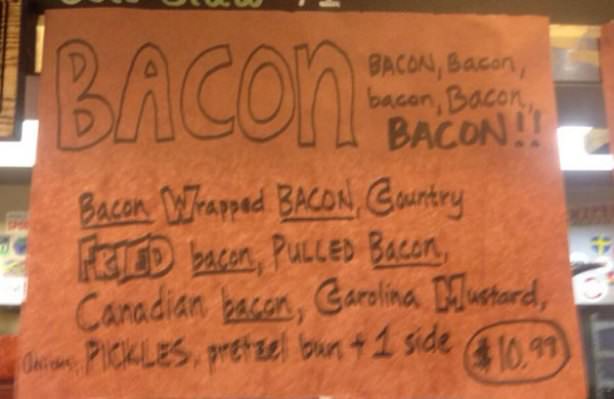 Cole Slaw +1
BACON
BACON, Bacon,
bacon, Bacon,
BACON!!
Bacon Wrapped BACON, Country
FRIED bacon, PULLED Bacon,
Canadian bacon, Carolina Mustard,
Onions, PICKLES, pretzel bun + 1 side $10.99